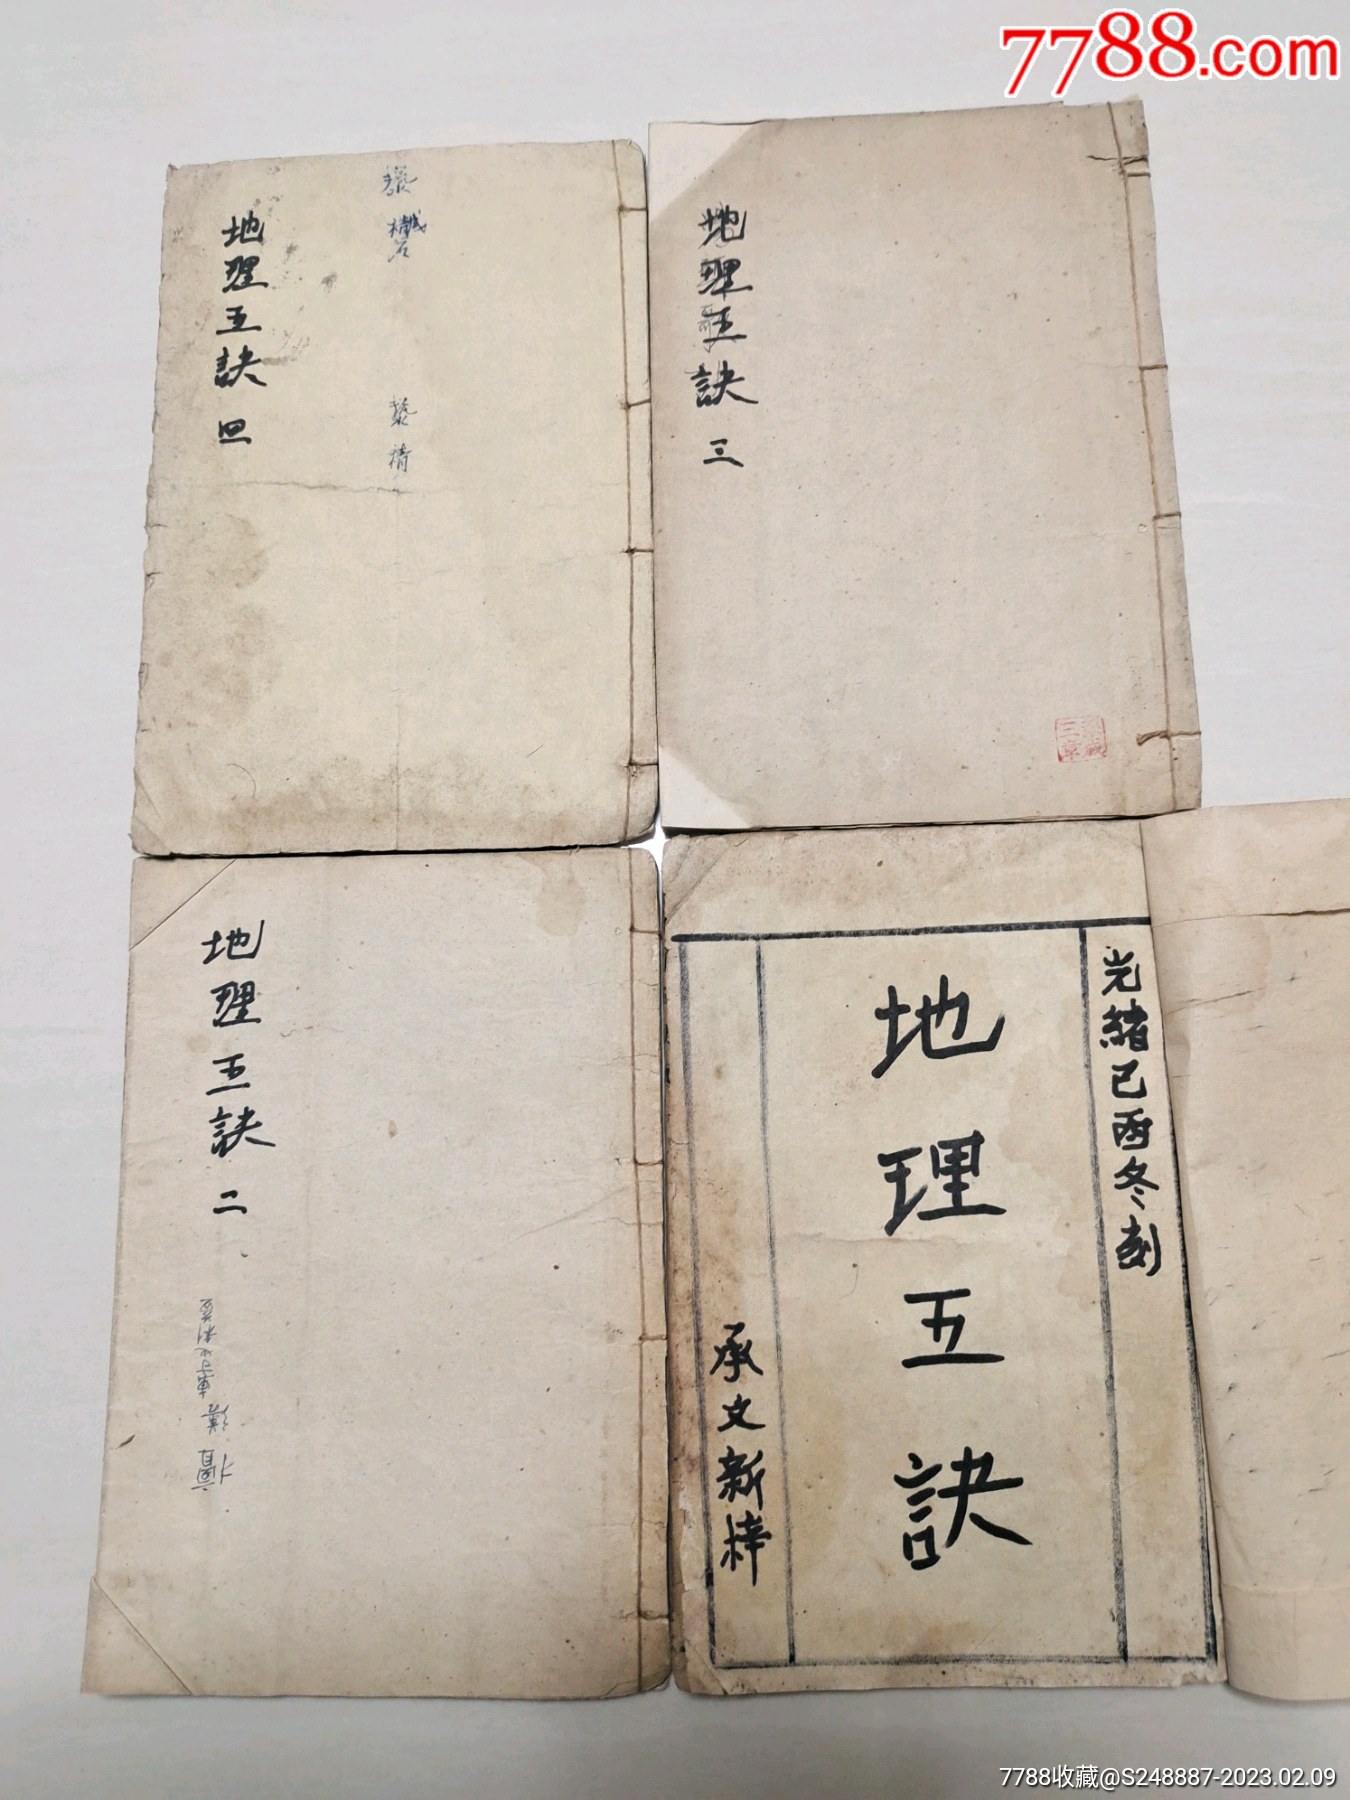 7788.com
地理五訣 四
地理五訣 三
地理五訣 二
光緒己酉冬刻
地理五訣
承文新梓
7788收藏@S248887-2023.02.09